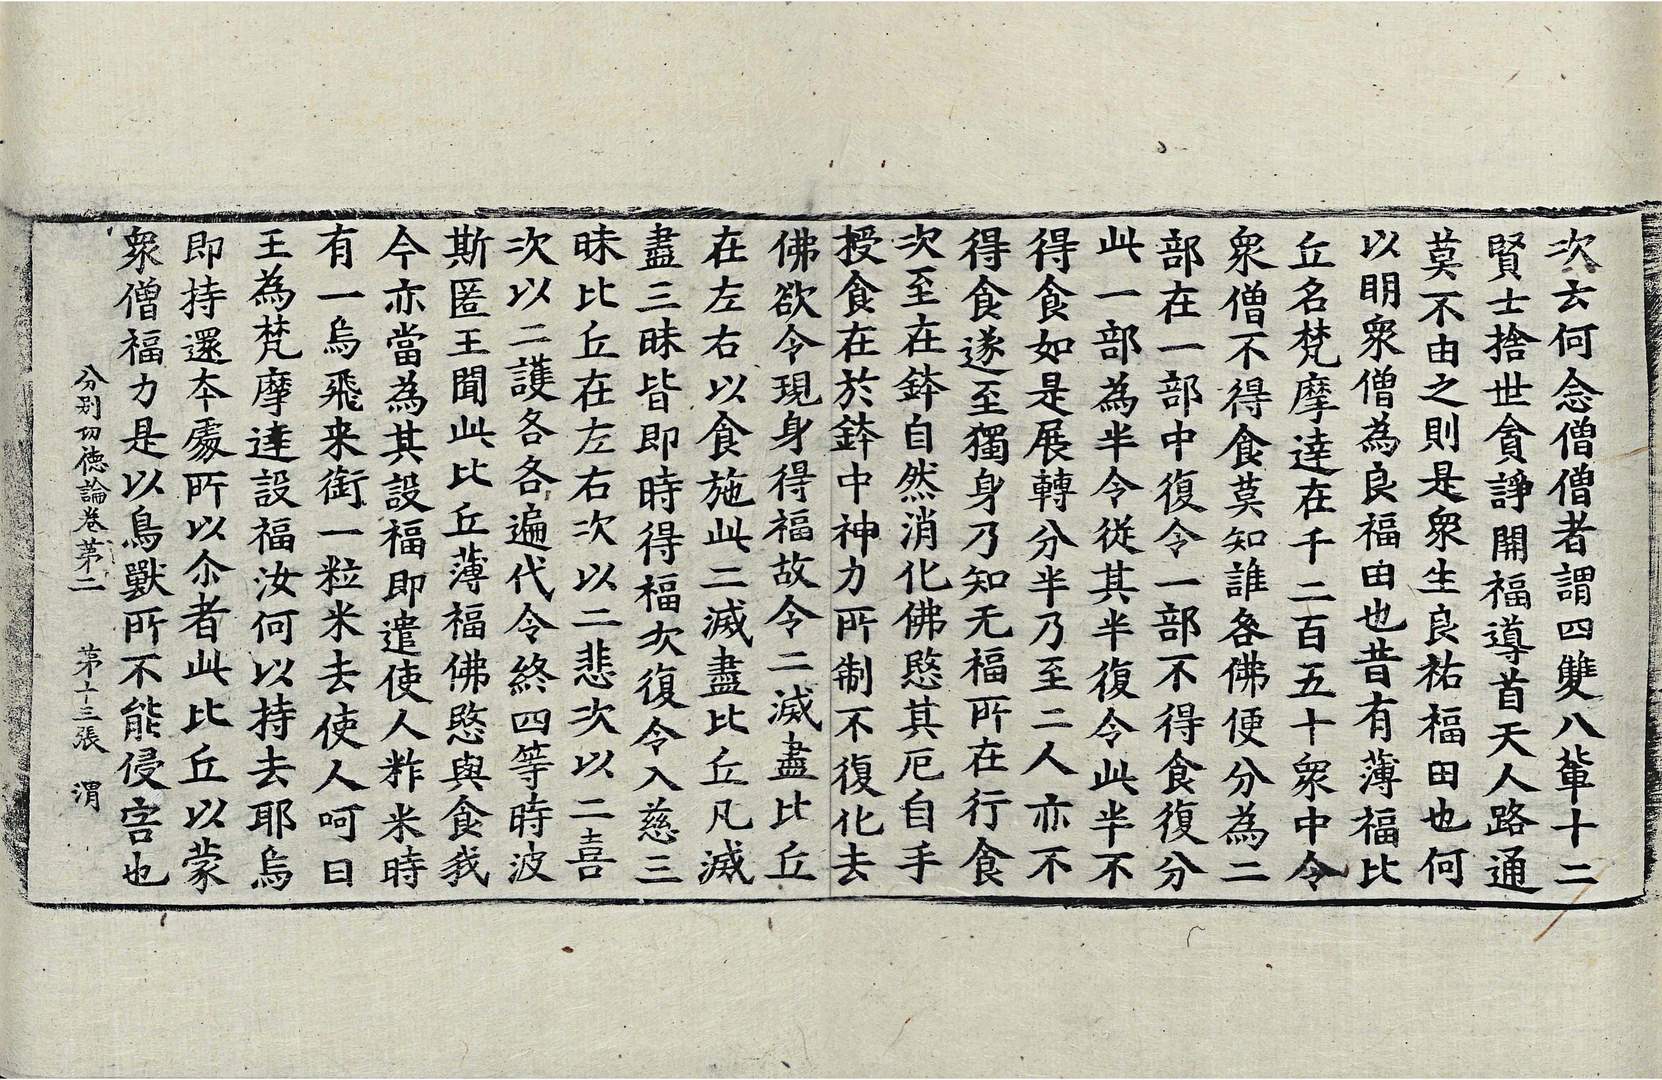 次云何念僧僧者謂四雙八輩十二
賢士捨世貪諍開福導首天人路通
莫不由之則是衆生良祐福田也何
以明衆僧為良福田也昔有薄福比
丘名梵摩達在千二百五十衆中令
衆僧不得食莫知誰咎佛便分為二
部在一部中復令一部不得食復分
此一部為半令從其半復令此半不
得食如是展轉分半乃至二人亦不
得食遂至獨身乃知无福所在行食
次至在鉢自然消化佛愍其厄自手
授食在於鉢中神力所制不復化去
佛欲令現身得福故令二滅盡比丘
在左右以食施此二滅盡比丘凡滅
盡三昧皆即時得福次復令入慈三
昧比丘在左右次以二悲次以二喜
次以二護各各遍代令終四等時波
斯匿王聞此比丘薄福佛愍與食我
今亦當為其設福即遣使人粼米時
有一烏飛来銜一粒米去使人呵曰
王為梵摩達設福汝何以持去耶烏
即持還本處所以尒者此比丘以蒙
衆僧福力是以鳥獸所不能侵害也
分別功德論卷第二 第十三張 渭